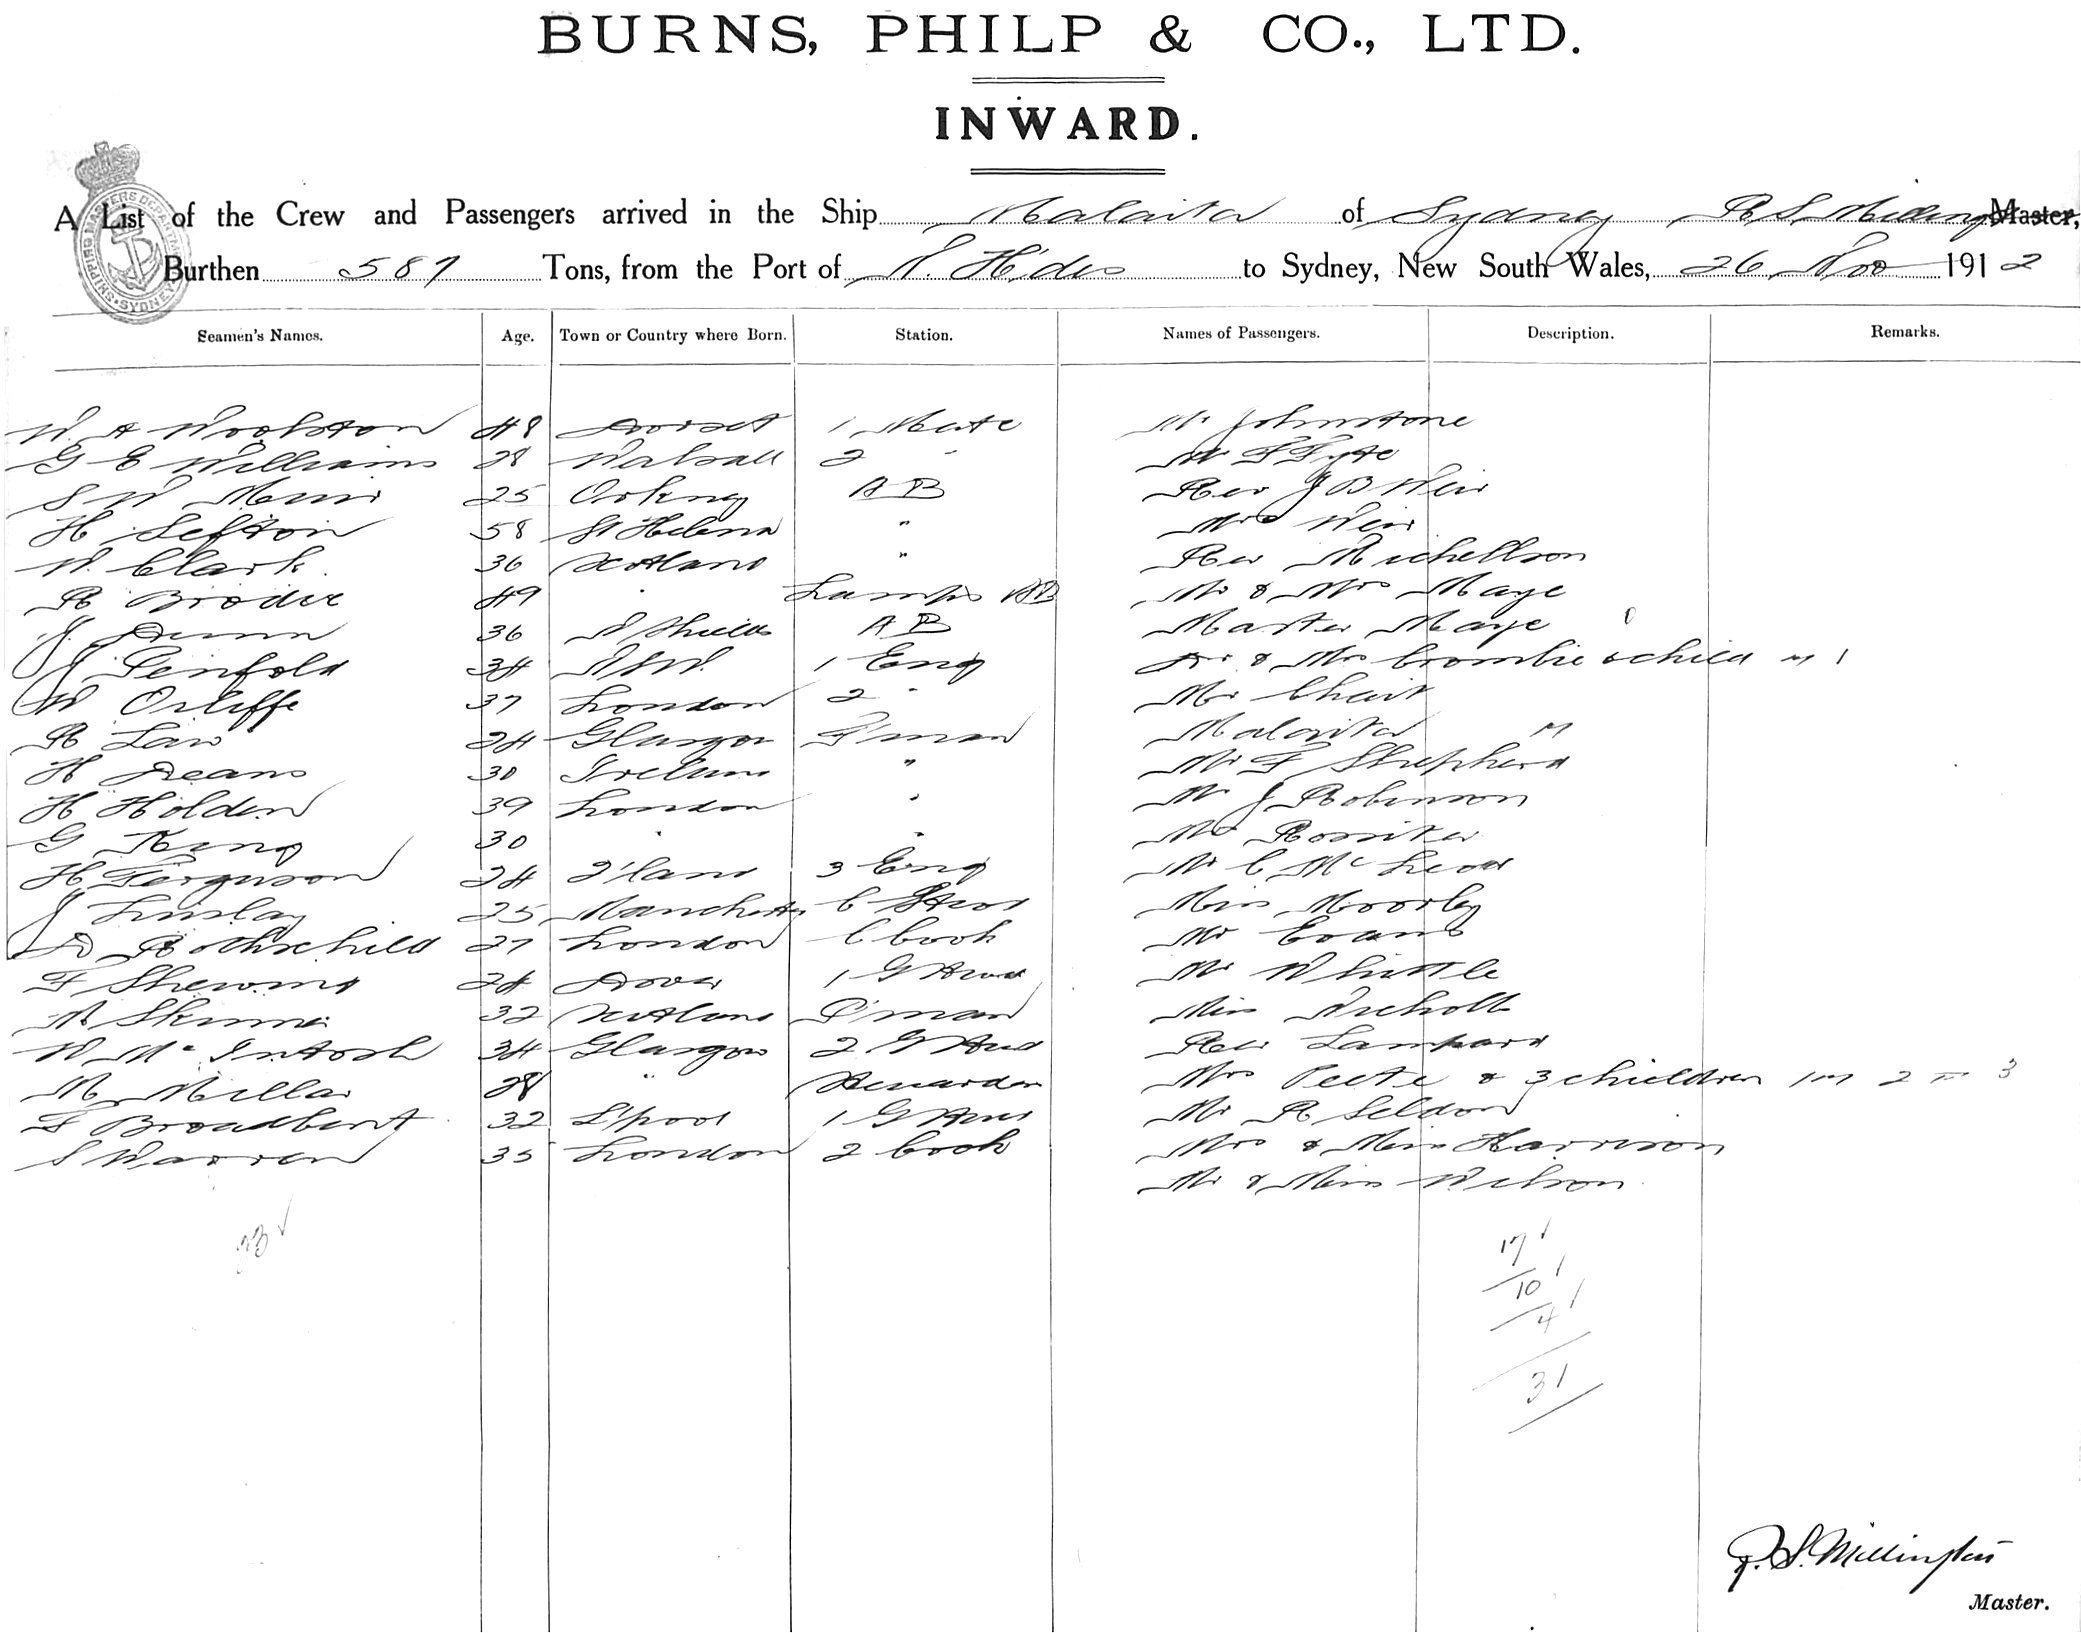 BURNS, PHILP & CO., LTD.
INWARD.
A List of the Crew and Passengers arrived in the Ship Malaita of Sydney R S Millington Master,
Burthen 587 Tons, from the Port of N. H'des to Sydney, New South Wales, 26 Nov 1912
Seamen's Names. Age. Town or Country where Born. Station. Names of Passengers. Description. Remarks.
W A Woolston 48 Dorset 1 Mate Mr Johnstone
G E Williams 28 Walsall 2 " Mr F Fyte
S W Muir 25 Orkney A B Rev J B Weir
H Sefton 58 St Helena " Mrs Weir
W. Clark 36 Scotland " Rev Michellson
R Brodie 49 " Lamps AB Mr & Mrs Maye
J Dunn 36 N Shields A B Master Maye
J Penfold 34 NSW. 1 Eng Dr & Mrs Crombie & child m 1
W 37 London 2 " Mr
R Law 24 Glasgow F'man Malaita m
H Deans 30 Ireland " Mr F Shepherd
H Holden 39 London " Mr J Robinson
G King 30 " " Mr Rossiter
H Ferguson 24 Z'land 3 Eng Mr C McLeod
J Linslay 25 Manchester C Stwd Miss Moorby
D Rothschild 27 London C Cook Mr Evans
F 24 Dover 1 G Stwd Mr Whittle
A Skinner 32 Scotland P'man Miss Nicholls
W McIntosh 34 Glasgow 2 G Stwd Rev Lampard
M Millar 28 " Stewardess Mrs Peete & 3 children 1 m 2 m 3
F Broadbent 32 L'pool 1 G Stwd Mr R Seldon
S Warren 35 London 2 Cook Mrs & Miss Harrison
Mr & Miss Wilson
23
17
10
4
31
R. S. Millington
Master.